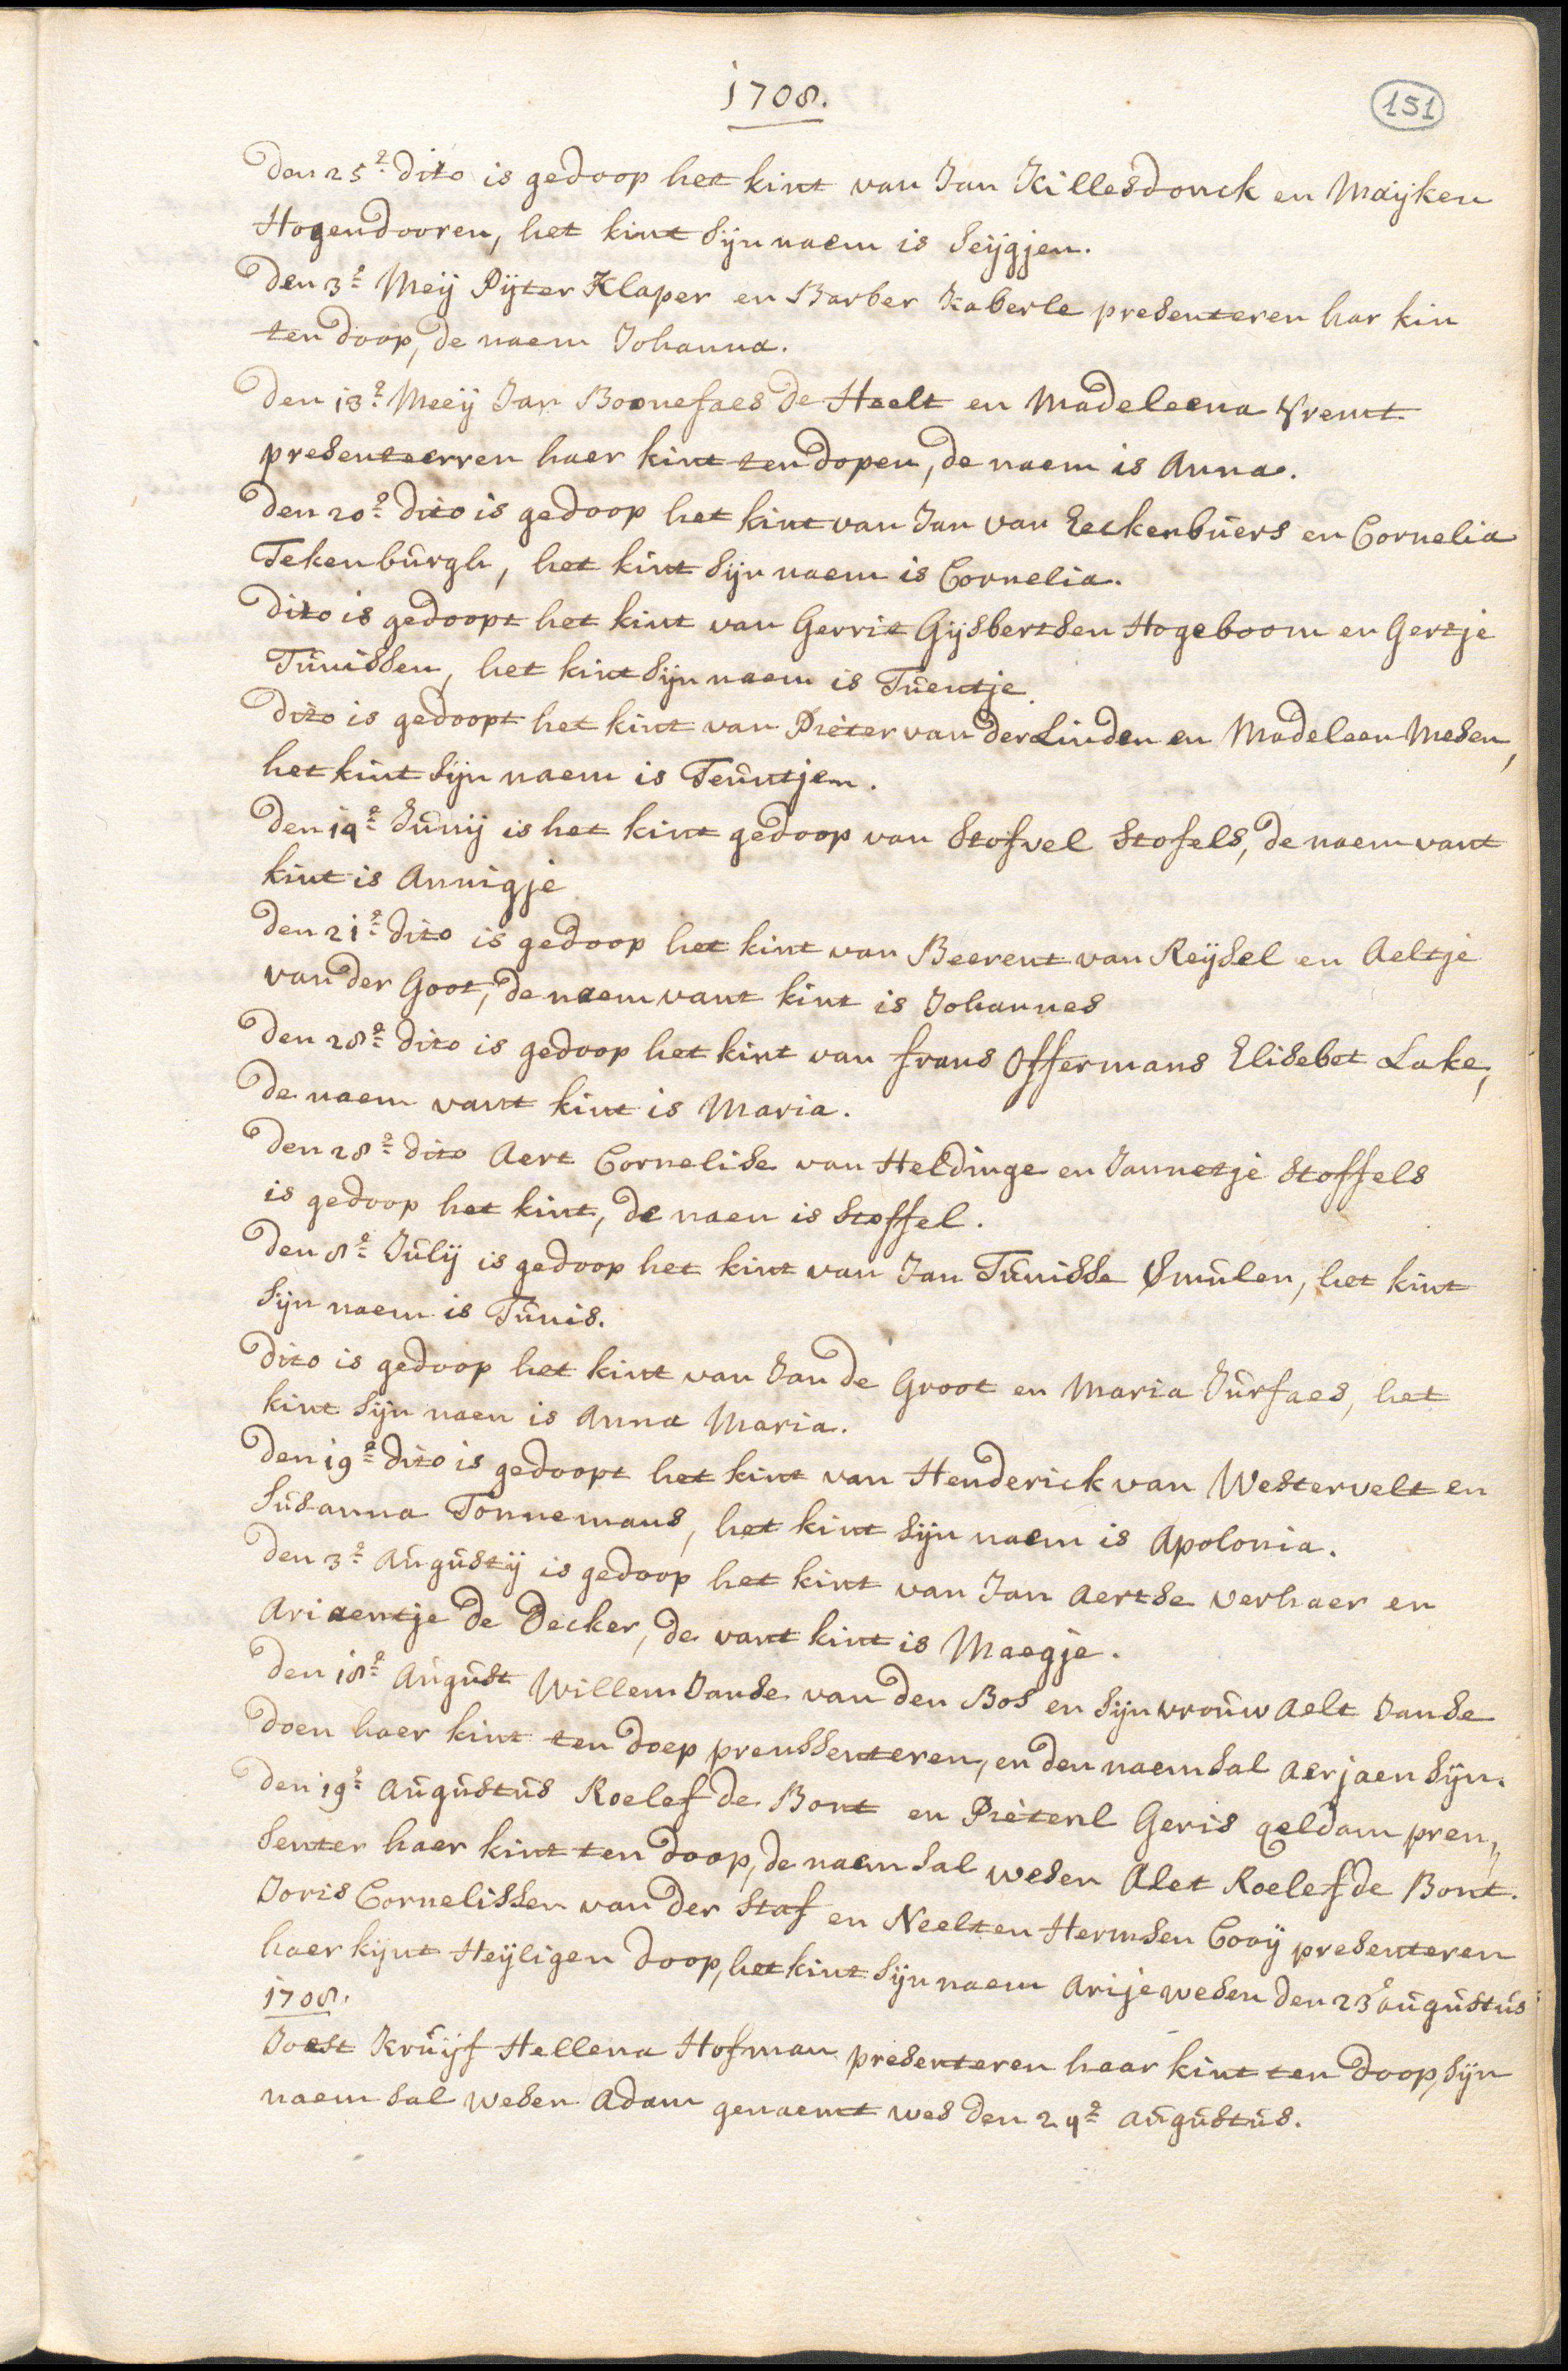 1708.
151
Den 25e dito is gedoop het kint van Jan Killesdonck en Maijken
Hogendooren, het kint sijn naem is Seijgjen.
Den 3e Meij Pijter Klaper en Barber Kaberle presenteren har kin
ten doop, de naem Johanna.
Den 13e Meeij Jan Boonefaes de Heelt en Madeleena Vremt
presenteerren haer kint ten dopen, de naem is Anna.
Den 20e dito is gedoop het kint van Jan van Eeckenbuers en Cornelia
Tekenburgh, het kint sijn naem is Cornelia.
Dito is gedoopt het kint van Gerrit Gijsbertsen Hogeboom en Gertje
Tunissen, het kint sijn naem is Tuentje.
Dito is gedoopt het kint van Pieter van der Linden en Madeleen Mesen,
het kint sijn naem is Teuntjen.
Den 14e Junij is het kint gedoop van Stofvel Stofels, de naem vant
kint is Annigje
Den 21e dito is gedoop het kint van Beerent van Reijsel en Aeltje
van der Goot, de naem vant kint is Johannes
Den 28e dito is gedoop het kint van frans Offermans Elisebet Lake,
de naem vant kint is Maria.
Den 28e dito Aert Cornelise van Heldinge en Jannetje Stoffels
is gedoop het kint, de naen is Stoffel.
Den 8e Julij is gedoop het kint van Jan Tunisse Smulen, het kint
sijn naem is Tunis.
Dito is gedoop het kint van Jan de Groot en Maria Jurfaes, het
kint sijn naen is Anna Maria.
Den 19e dito is gedoopt het kint van Henderick van Westervelt en
Susanna Tonnemans, het kint sijn naem is Apolonia.
Den 3e Augustij is gedoop het kint van Jan Aertse Verhaer en
Ariaentje de Decker, de vant kint is Maegje.
Den 18e August Willem Janse van den Bos en sijn vrouw Aelt Janse
doen haer kint ten doep prenssenteren, en den naem sal Aerjaen sijn.
Den 19e Augustus Roelef de Bont en Pietenl Geris geldam pren„
senter haer kint ten doop, de naem sal wesen Alet Roelef de Bont.
Joris Cornelissen van der Staf en Neelten Hermsen Cooij presenteren
haer kijnt Heijligen doop, het kint sijn naem Arije wesen den 23e augustus
1708.
Joest Kruijf Hellena Hofman presenteren haar kint ten doop, sijn
naem sal wesen Adam genaemt wes den 29e augustus.